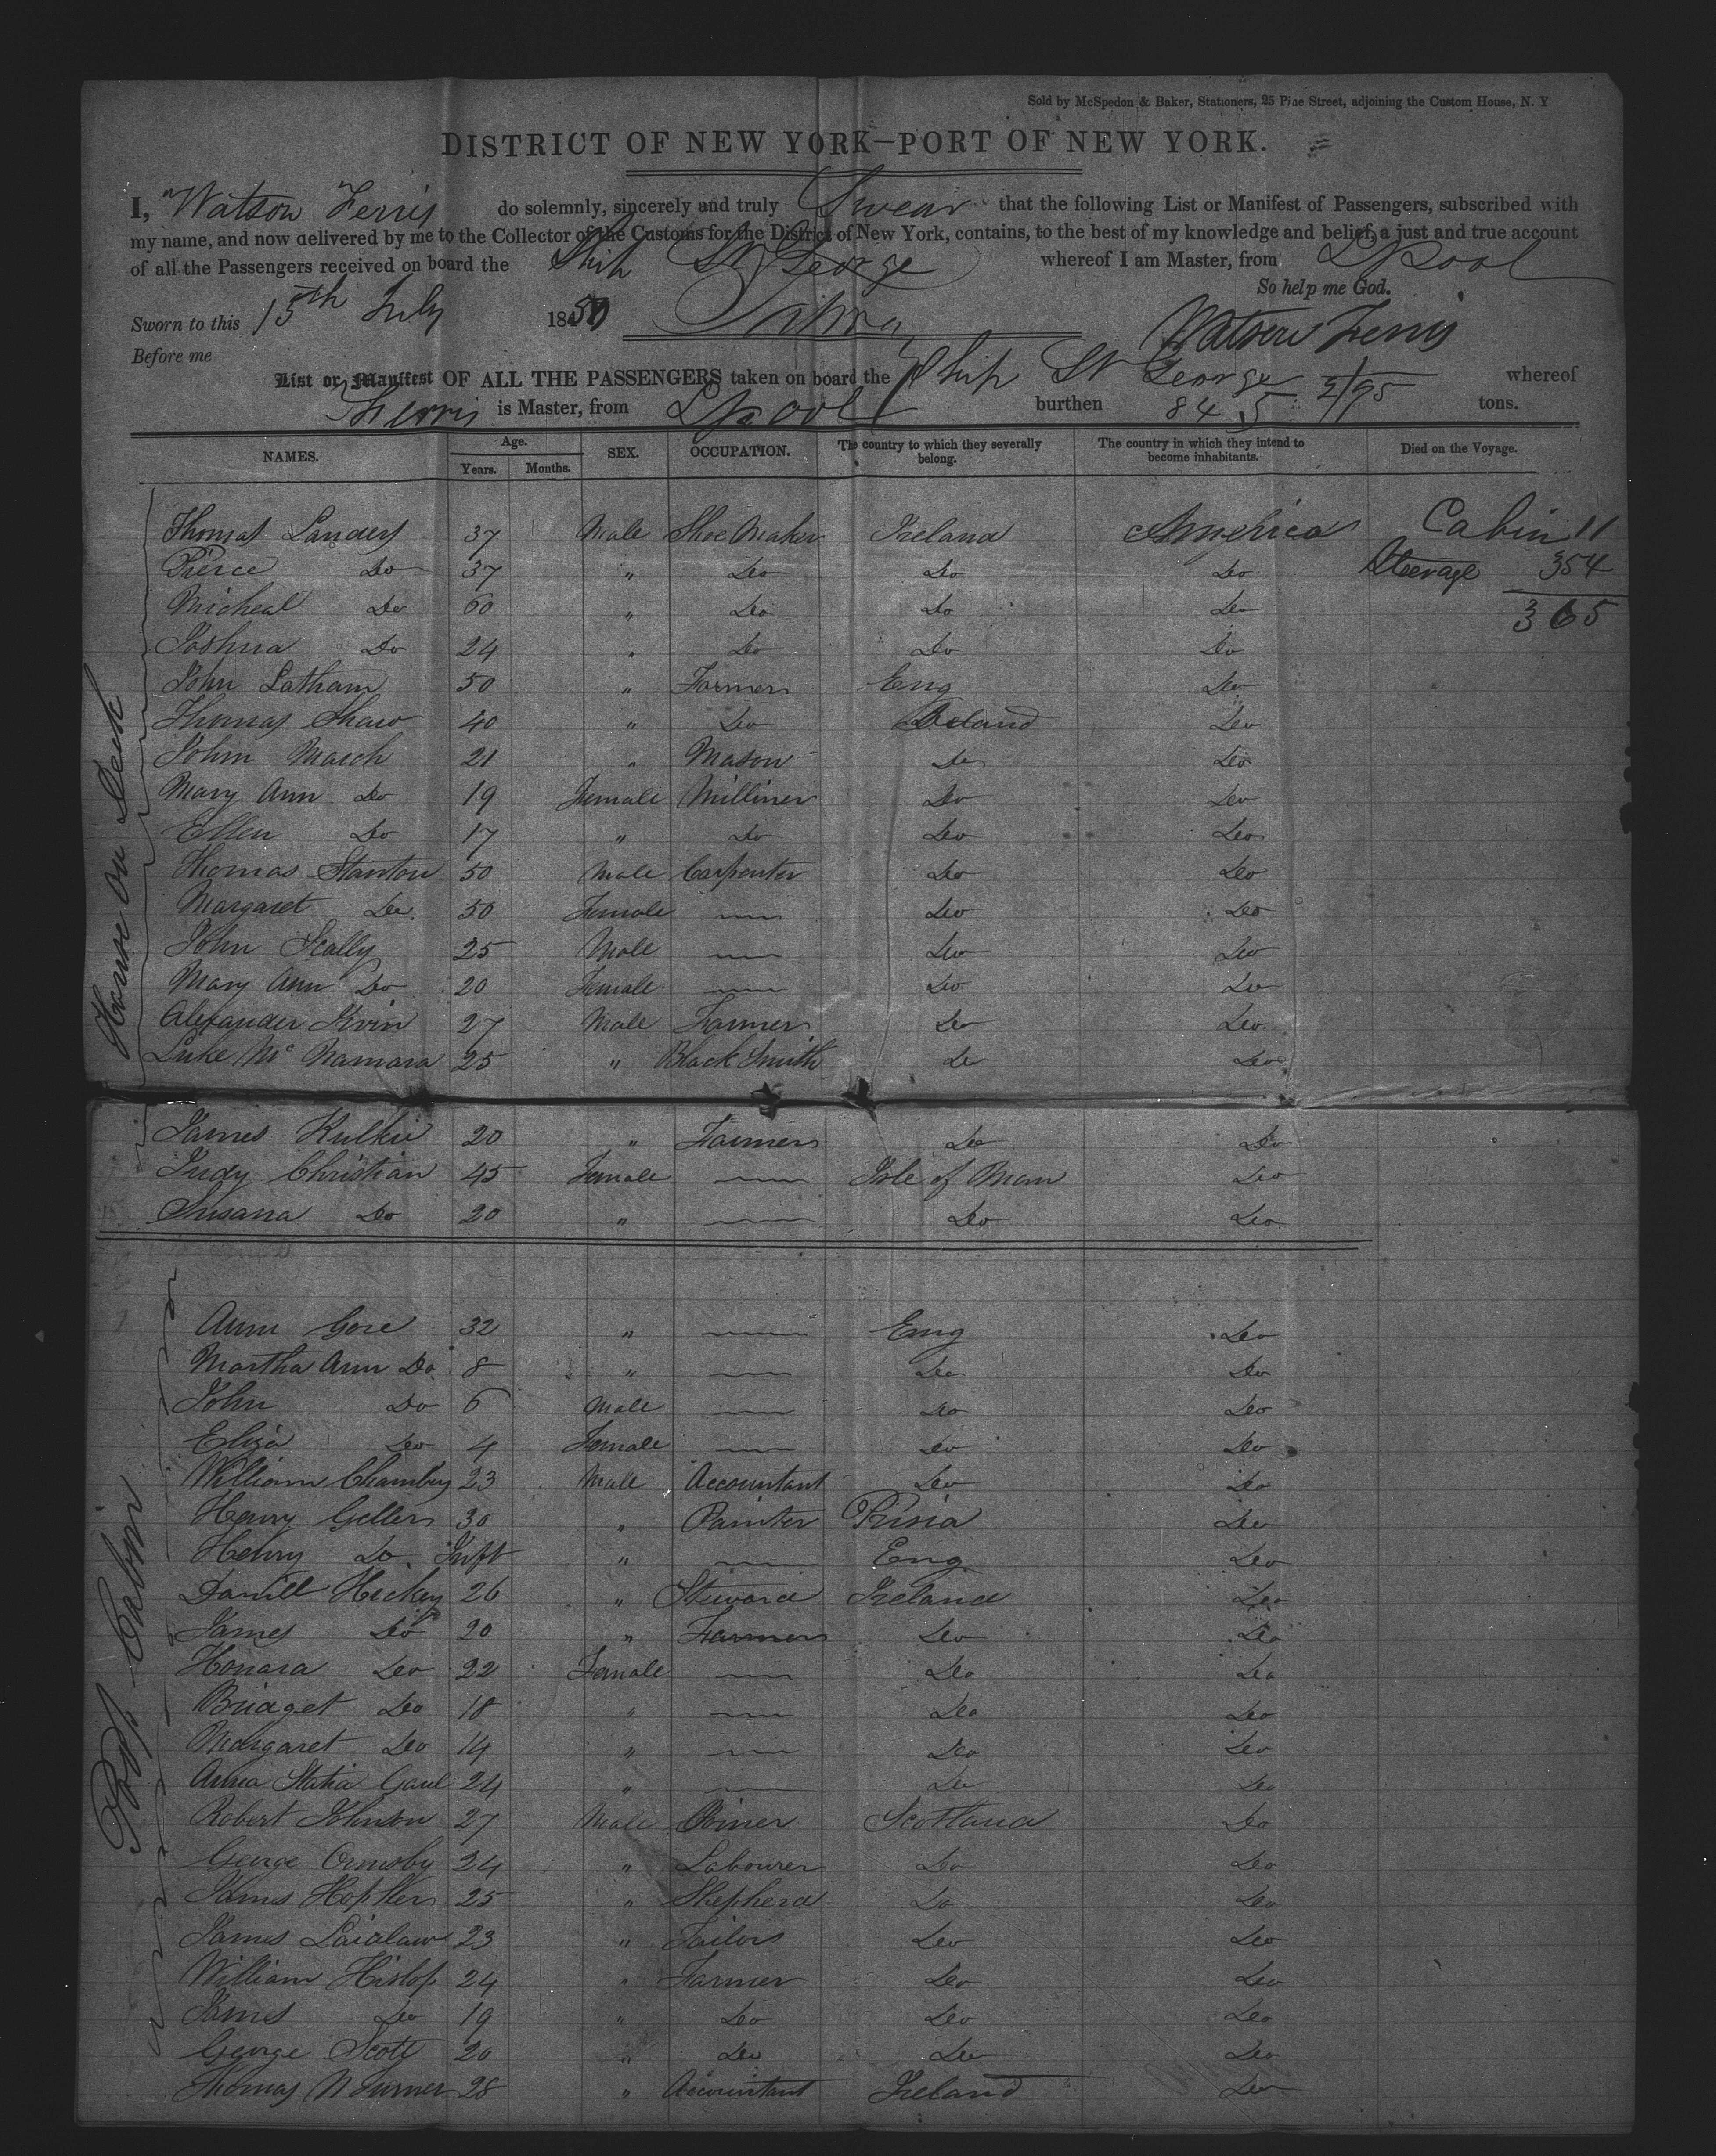 Sold by McSpedon & Baker, Stationers, 25 Pine Street, adjoining the Custom House, N. Y
DISTRICT OF NEW YORK—PORT OF NEW YORK.
I, Watson Ferris do solemnly, sincerely and truly Swear that the following List or Manifest of Passengers, subscribed with
my name, and now delivered by me to the Collector of the Customs for the District of New York, contains, to the best of my knowledge and belief, a just and true account
of all the Passengers received on board the Ship St George whereof I am Master, from L'Pool
So help me God.
Sworn to this 15th July 1850
Watson Ferris
Before me
List or Manifest OF ALL THE PASSENGERS taken on board the Ship St George whereof
Ferris is Master, from L'pool burthen 845 2/95 tons.
NAMES. Age. Years. Months. SEX. OCCUPATION. The country to which they severally belong. The country in which they intend to become inhabitants. Died on the Voyage.
House on Deck
Thomas Landers 37 Male Shoe Maker Ireland America Cabin 11
Pierce Do 37 " Do Do Do Steerage 354
Micheal Do 60 " Do Do Do 365
Joshua Do 24 " Do Do Do
John Latham 50 " Farmer Eng Do
Thomas Shaw 40 " Do Ireland Do
John March 21 " Mason Do Do
Mary Ann Do 19 Female Milliner Do Do
Ellen Do 17 " Do Do Do
Thomas Stanton 50 Male Carpenter Do Do
Margaret Do 50 Female — Do Do
John Scally 25 Male — Do Do
Mary Ann Do 20 Female — Do Do
Alexander Irvin 27 Male Farmer Do Do
Luke Mc Namara 25 " Black Smith Do Do
James Kulkie 20 " Farmer Do Do
Judy Christian 45 Female — Isle of Man Do
Susana Do 20 " — Do Do
Poop Cabin
Ann Gore 32 " — Eng Do
Martha Ann Do 8 " — Do Do
John Do 6 Male — Do Do
Eliza Do 4 Female — Do Do
William Chambers 23 Male Accountant Do Do
Henry Gellers 30 " Painter Prisia Do
Henry Do Inft " — Eng Do
Daniel Hickey 26 " Steward Ireland Do
James Do 20 " Farmer Do Do
Honara Do 22 Female — Do Do
Bridget Do 18 " — Do Do
Margaret Do 14 " — Do Do
Anna Statia Gaul 24 " — Do Do
Robert Johnson 27 Male Joiner Scotland Do
George Ormsby 24 " Labourer Do Do
James 25 " Shepherd Do Do
James Laidlaw 23 " Tailor Do Do
William Hislop 24 " Farmer Do Do
James Do 19 " Do Do Do
George Scott 20 " Do Do Do
Thomas N Turner 28 " Accountant Ireland Do